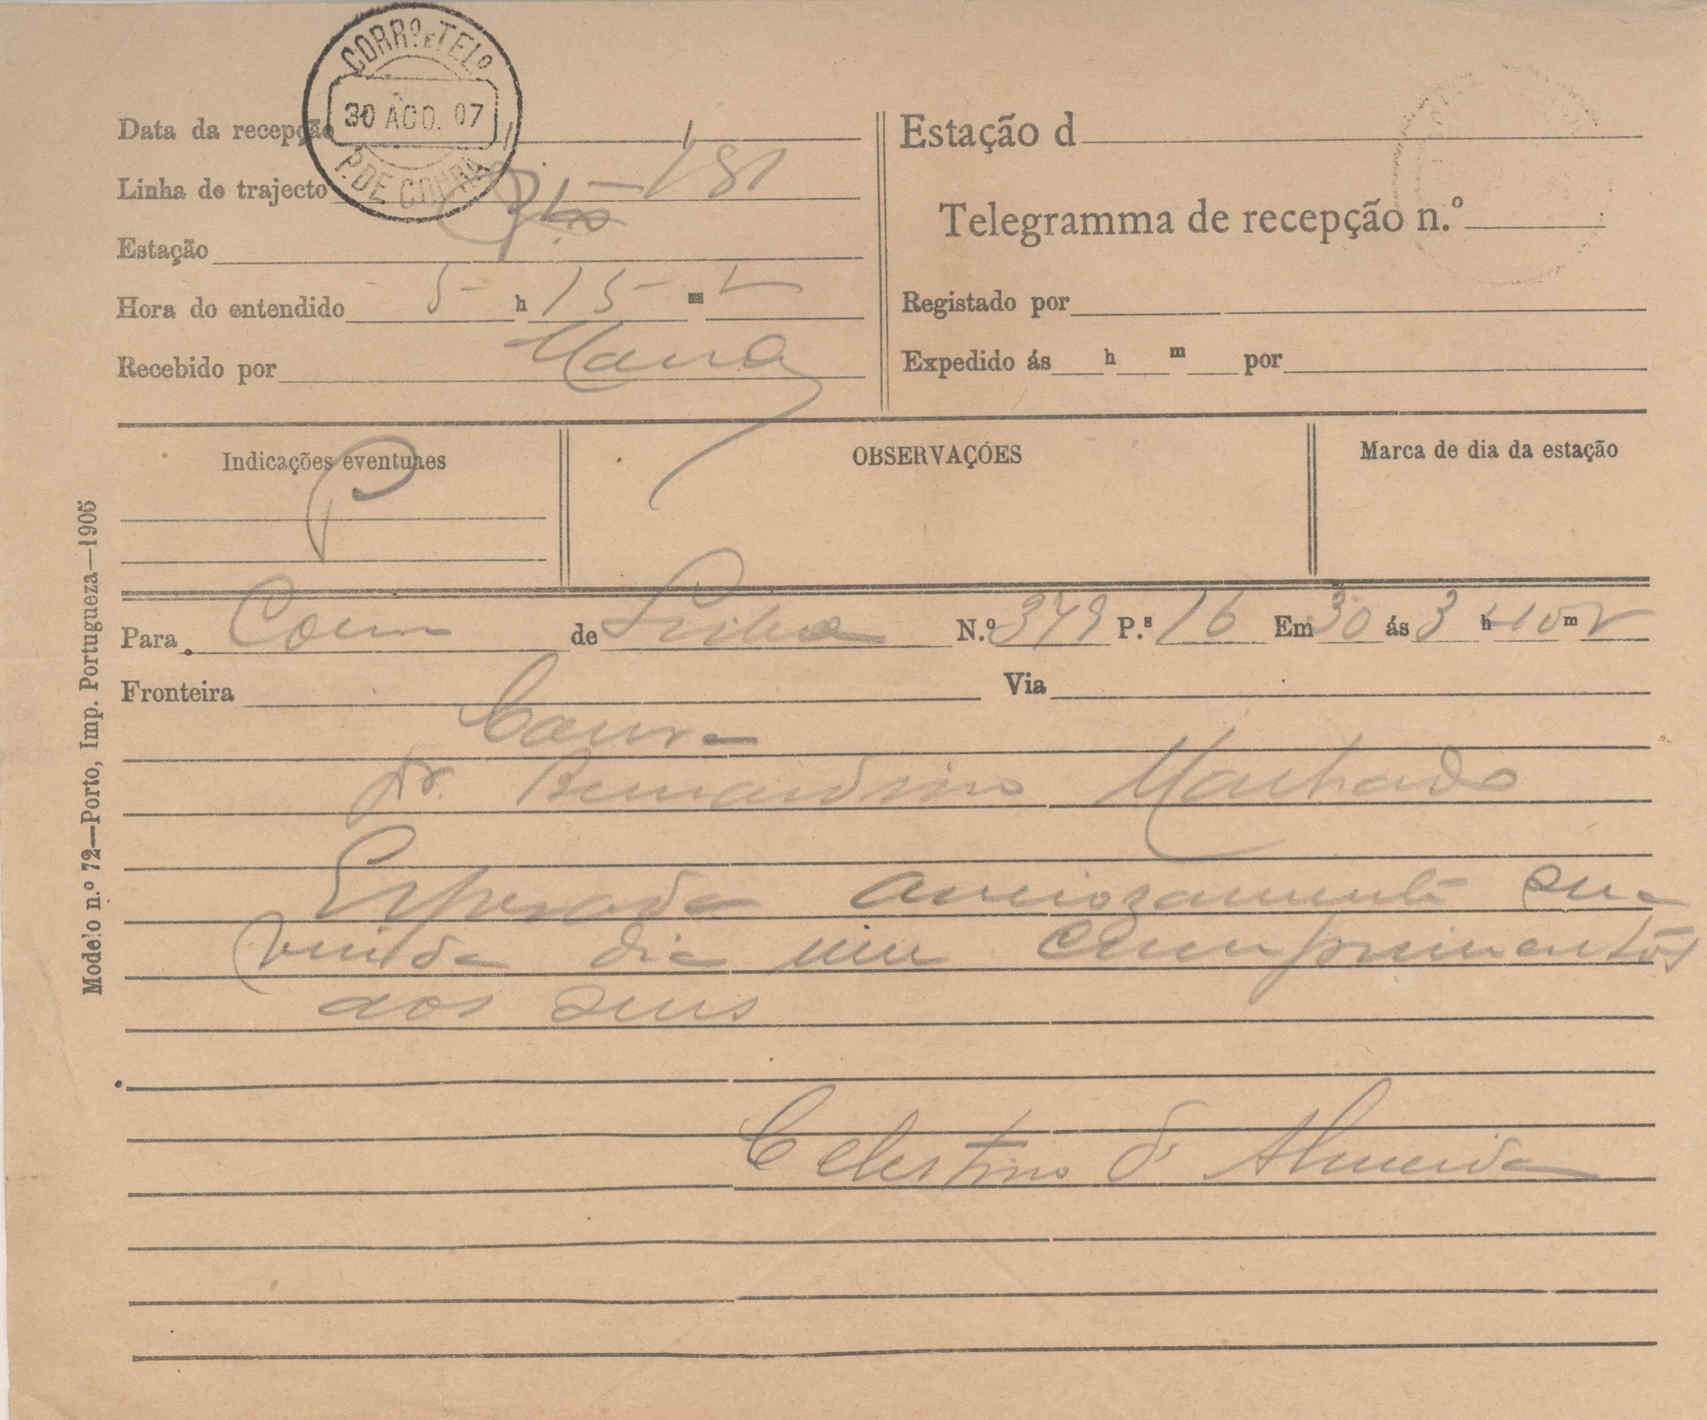 CORRº. E TELº
30 AGO. 07
P. DE COURA
Data da recepção
Linha de trajecto 181
Estação
Hora do entendido 5 h 15 m
Recebido por
Estação d
Telegramma de recepção n.º
Registado por
Expedido ás h m por
Indicações eventuaes
P
OBSERVAÇÕES
Marca de dia da estação
Para Coura de Lisboa N.º 379 P.s 16 Em 30 ás 3 h 40 m
Fronteira Via
Coura
Dr. Bernardino Machado
Esperada anciozamente sua
vinda dia um cumprimentos
aos seus
Celestino d'Almeida
Modelo n.º 72—Porto, Imp. Portugueza—1905